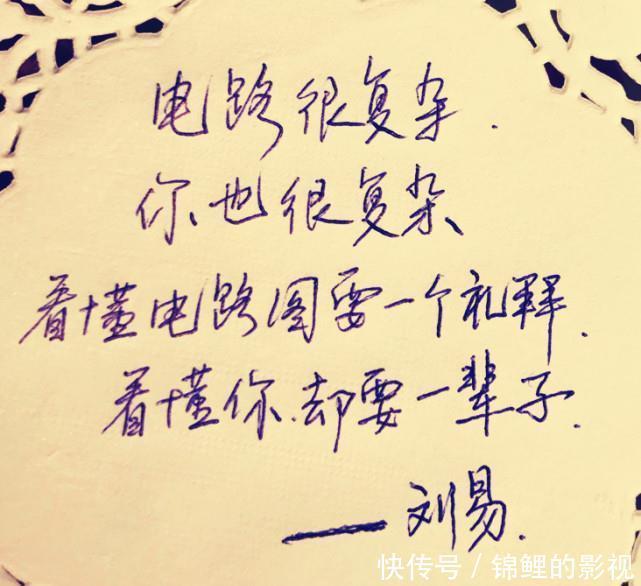 电路很复杂.
你也很复杂
看懂电路图要一个礼拜.
看懂你.却要一辈子.
——刘易.
快传号/锦鲤的影视